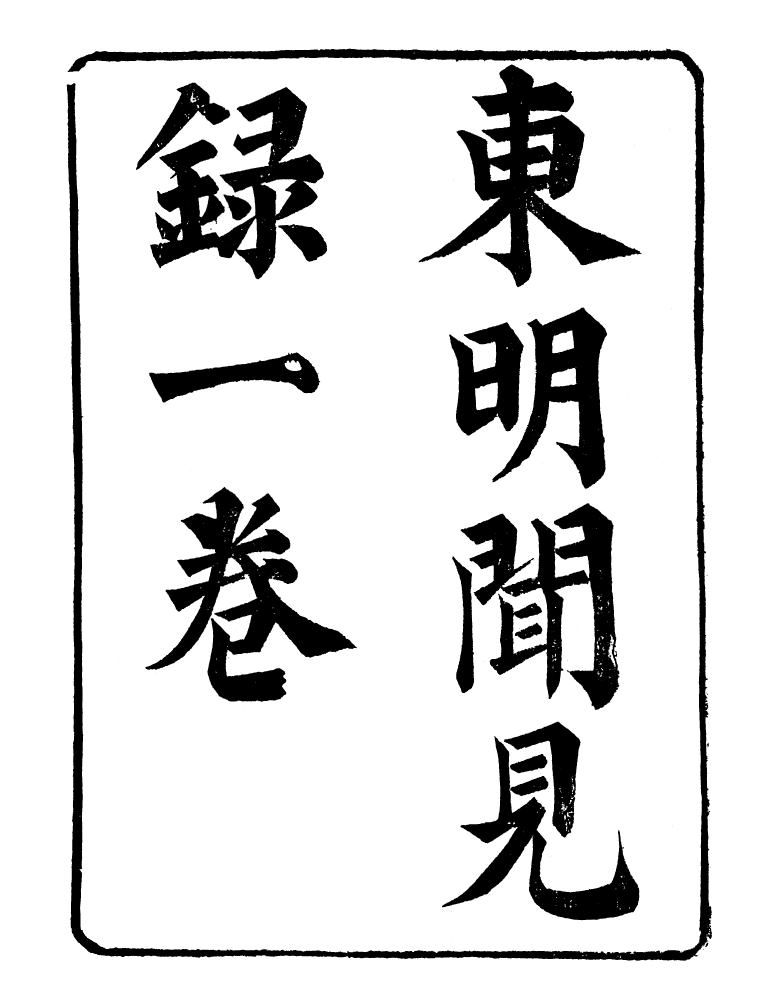 東明聞見
録一卷